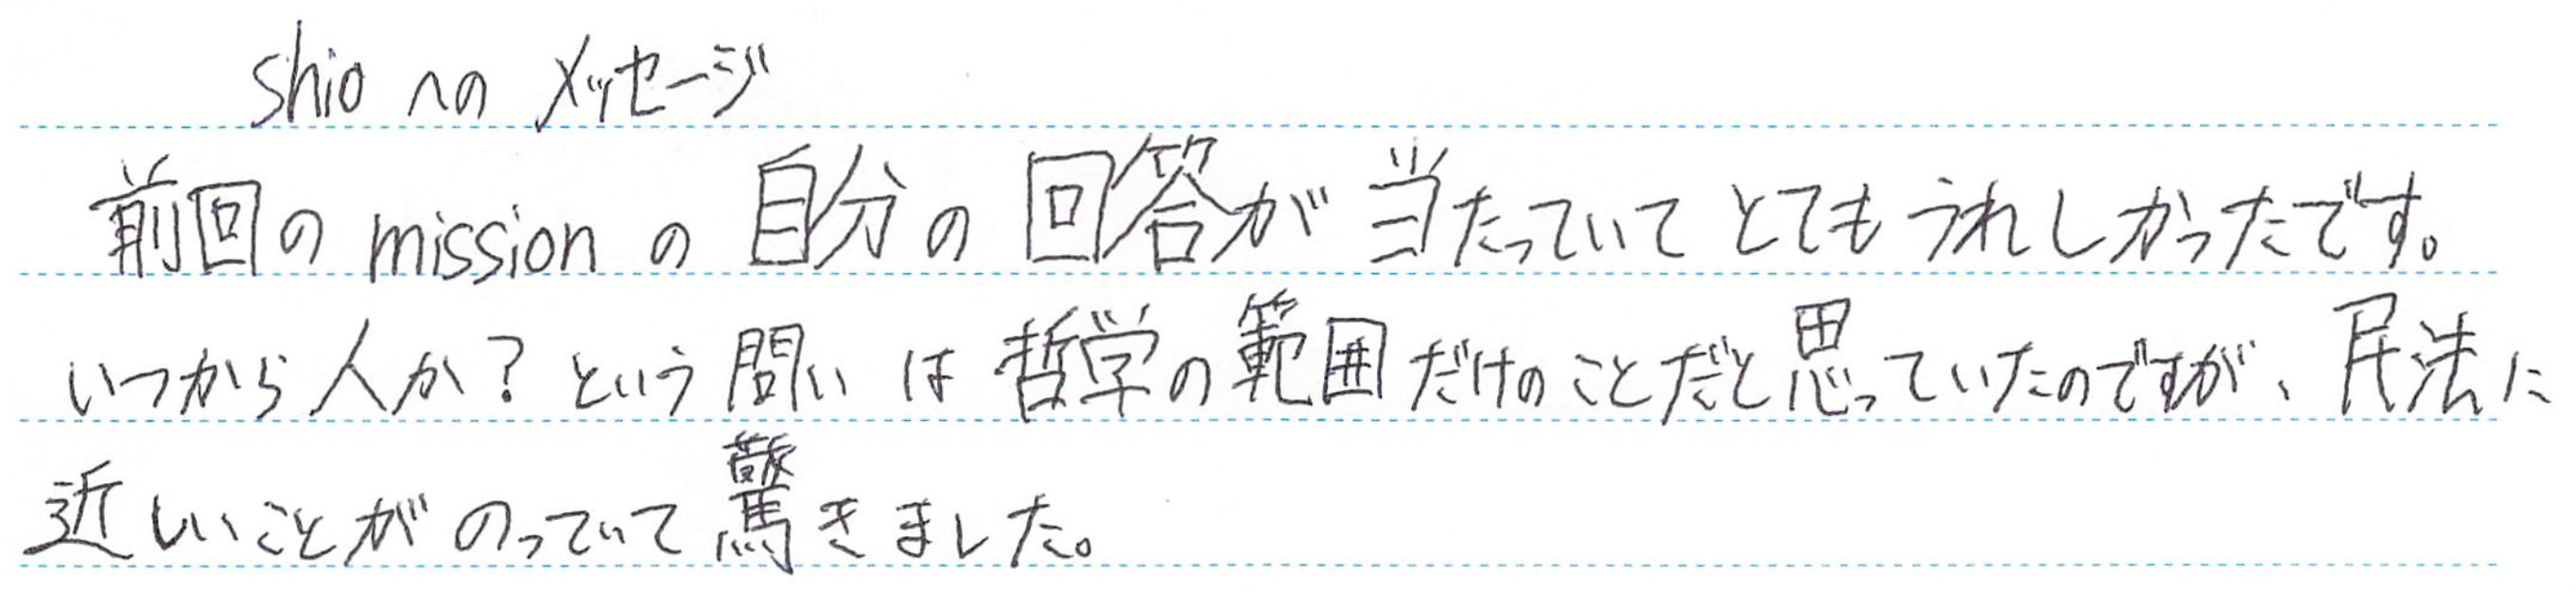 shioへのメッセージ
前回のmissionの自分の回答が当たっていてとてもうれしかったです。
いつから人か?という問いは哲学の範囲だけのことだと思っていたのですが、民法に
近しいことがのっていて驚きました。